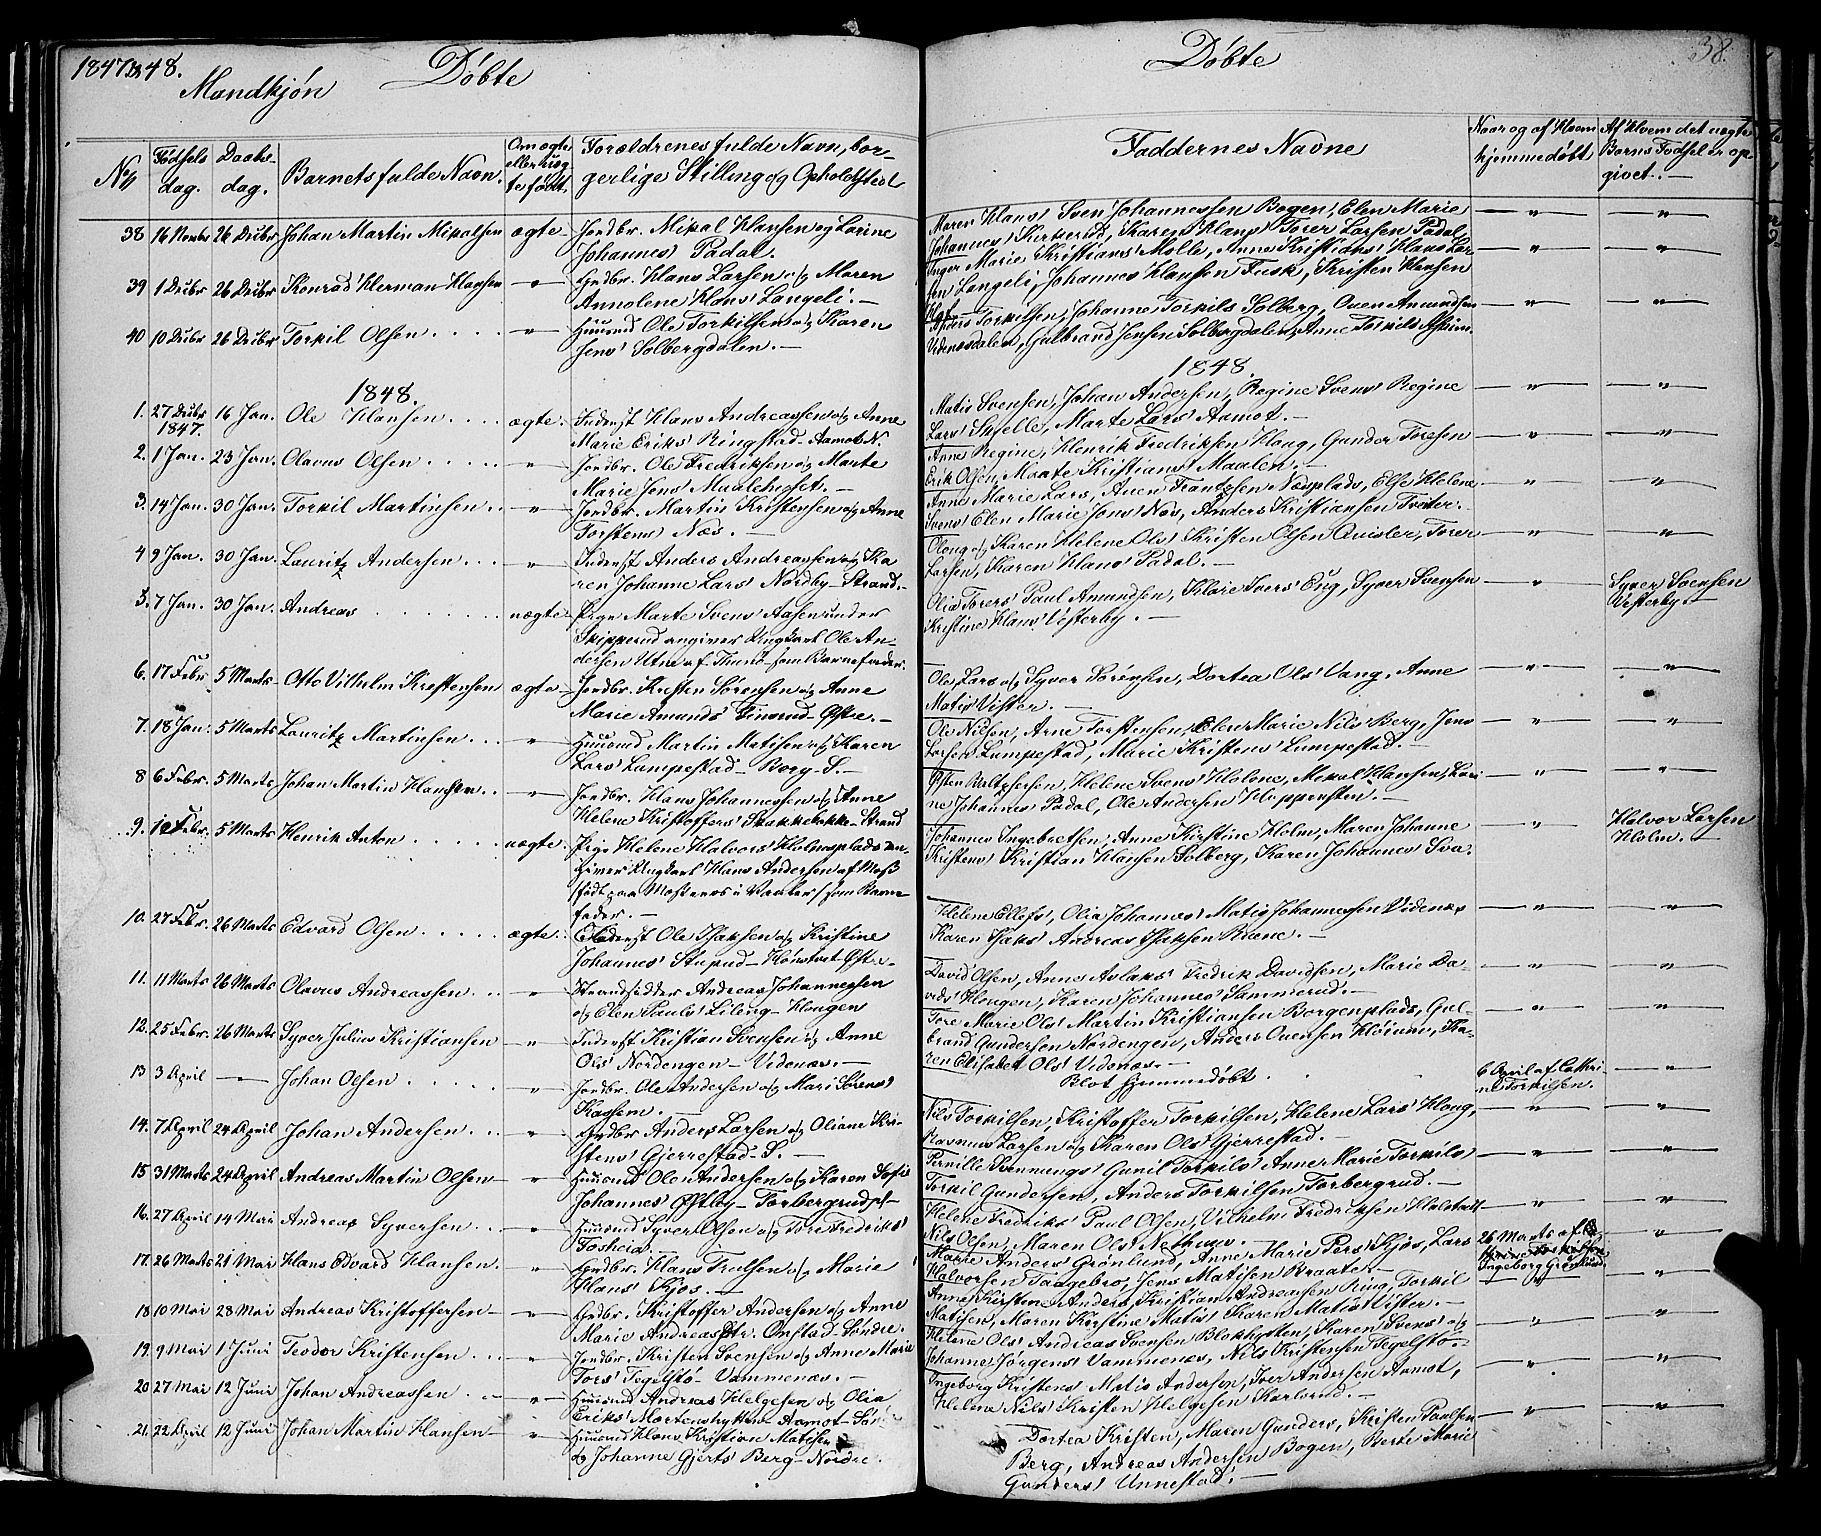 1847 & 48.
Mandkjøn
Døbte
No
Fødsels
dag.
Daabs-
dag.
Barnets fulde Navn.
Om ægte
eller uæg
te født.
Forældrenes fulde Navn, bor-
gerlige Stilling og Opholdsted
38 16 Novbr 26 Decbr Johan Martin Mikalsen ægte- Jordbr. Mikal Hansen og Larine
Johannes' Padal.
39 1 Decbr 26 Decbr Konrad Herman Hansen — " — Grdbr. Hans Larsen og Maren
Annolene Hans' Langeli. —
40 10 Decbr 26 Decbr Torkil Olsen . . . . — " — Huusmd Ole Torkilsen og Karen
Jens' Solbergdalen. —
1848.
1. 27 Decbr 16 Jan. Ole Hansen . . . . ægte. Inderst Hans Andreassen og Anne
1847. Marie Eriks' Ringstad- Aamot N.
2. 1 Jan. 23 Jan. Olavus Olsen . . . . . — " — Jordbr. Ole Fredriksen og Marte
Marie Jens' Maalehuset. —
3. 14 Jan. 30 Jan. Torkil Martinsen . . — " — Jordbr. Martin Kristensen og Anne
Torstens' Næs. —
4 9 Jan. 30 Jan. Lauritz Andersen . . . — " — Inderst Anders Andreassen og Ka
ren Johanne Lars' Nordby- Strand-
5. 7 Jan. 30 Jan. Andreas . . . . . . . uægte- Pige Marte Svens' Aasen under
Skipperud angiver Ungkarl Ole An-
dersen Utne af Thunø som Barnefader.
6. 17 Febr 5 Marts- Otto Vilhelm Kristensen ægte- Jordbr. Kristen Sørensen og Anne
Marie Amunds' Finsrud- Østre. —
7. 18 Jan. 5 Marts Lauritz Martinsen . . . — " — Huusmd Martin Matisen og Karen
Lars' Lumpestad- Borg- S. —
8 6 Febr. 5 Marts Johan Martin Hansen. . — " — Jordbr. Hans Johannessen og Anne
Helene Kristoffers' Stakkelokke- Strand
9. 12 Febr. 5 Marts Henrik Anton . . . . . uægte. Pige Helene Halvors' Holmsplads an-
giver Ungkarl Hans Andersen af Moss
(født paa Mosteros i Vaaler) som Barne
fader. —
10. 27 Febr. 26 Marts Edvard Olsen . . . . . ægte. Inderst Ole Isaksen og Kristine
Johannes' Stupud- Hønstvet Østre-
11. 11 Marts 26 Marts Olavus Andreassen . . . — " — Strandsidder Andreas Johannessen
og Elen Pauls' Lileng- Haugen
12. 25 Febr. 26 Marts Syver Julius Kristiansen — " — Inderst Kristian Svensen og Anne
Ols' Nordengen- Videnæs. —
13 3 April — Johan Olsen . . . . . " Jordbr. Ole Andersen og Mari Sørens'
Kassem. —
14. 7 April 24 April Johan Andersen . . . — " — Grdbr Anders Larsen og Oliane Kri-
stens' Gjerrestad- S. —
15 31 Marts 24 April Andreas Martin Olsen — " — Huusmd Ole Andersen og Karen Sofie
Johannes' Østby- Torbergrudpl-
16. 27 April 14 Mai Andreas Syversen . . — " — Huusmd Syver Olsen og Tore Fredriks'
Fosheia. —
17. 26 Marts 21 Mai Hans Edvard Hansen. — " — Grdbr. Hans Trulsen og Marie
Hans' Kjøs. —
18 10 Mai 28 Mai Andreas Kristoffersen — " — Grdbr. Kristoffer Andersen og Anne
Marie Andreas'str. Onstad- Søndre.
19. 9 Mai 1 Juni Teodor Kristensen . . — " — Jordbr. Kristen Svensen og Anne Marie
Tors' Tegelstø- Vammenæs. —
20 27 Mai 12 Juni Johan Andreassen . . — " — Huusmd Andreas Helgesen og Olia
Eriks' Mortenshytten- Aamot-
21. 22 April 12 Juni Johan Martin Hansen — " — Huusmd Hans Kristian Matisen
og Johanne Gjerts' Berg- Nordre.
38.
Døbte
Faddernes Navne
Naar og af Hvem
hjemmedøbt
Af Hvem det uægte
Barns Fødsel er op-
givet. —
Maren Hans' Sven Johannessen Bogen, Elen Marie — " — — " —
Johannes' Kirkerud, Karen Hans' Torer Larsen Padal.
Inger Marie Kristians' Molle, Anne Kristians' Hans Lar — " — — " —
sen Langeli, Johannes Hansen Fusk, Kristen Hansen
Anders Torkilsen, Johanne Torkils' Solberg, Ouen Amundsen — " — — " —
Videnesdalen, Gulbrand Jensen Solbergdalen, Anne Torkils' Askim.
1848.
Matis Svensen, Johan Andersen, Regine Svens' Regine — " — — " —
Lars' Skjelle, Marte Lars' Aamot. —
Anne Regine, Henrik Fredriksen Houg, Gunder Toresen — " — — " —
Erik Olsen, Marte Kristians' Maalen. —
Anne Marie Lars, Auen Frantzsen Næsplads, Else Helene — " — — " —
Svens' Elen Marie Jens' Næs, Anders Kristiansen Tveter.
Oloug og Karen Helene Ols' Kristen Olsen Quisler, Torer — " — — " —
Larsen, Karen Hans' Padal. —
Olia Torers' Paul Amundsen, Klare Ivers' Eng, Syver Svensen — " — Syver Svensen
Kristine Hans' Vesterby. — Vesterby. —
Ole Lars og Syver Sørensen, Dortea Ols' Vang, Anne — " — — " —
Matis' Vister. —
Ole Nilsen, Arne Torstensen, Elen Marie Nils' Berg, Jens — " — — " —
Larsen Lumpestad, Marie Kristens' Lumpestad. —
Østen Baltzersen, Helene Svens' Halvne, Mikal Hansen, Lari — " — — " —
ne Johannes' Padal, Ole Andersen Huppensten. —
Johannes Ingebretsen, Anne Kirstine Holm, Maren Johanne — " — Halvor Larsen
Kristens' Kristian Hansen Solberg, Karen Johannes' Sva. Holm. —
Helene Ellefs', Olia Johannes' Matis Johannessen Videnæs — " — — " —
Karen Isaks' Andreas Isaksen Bræne. —
David Olsen, Anne Aslaks' Fredrik Davidsen, Marie Da- — " — — " —
vids' Hougen, Karen Johannes' Sammerud. —
Tore Marie Ols' Martin Kristiansen Borgenplads, Gul- — " — — " —
brand Gundersen Nordengen, Anders Ouensen Hovum, Ka-
ren Elisabet Ols' Videnæs. —
Blot hjemmedøbt . . 6 April af Cathri- — " —
ne Torkilsen.
Nils Torkilsen, Kristoffer Torkilsen, Helene Lars' Houg, — " — — " —
Rasmus Larsen og Karen Ols' Gjerrestad. —
Pernille Svennungs' Gunil Torkils' Anne Marie Torkils' — " — — " —
Torkil Gundersen, Anders Torkilsen Torbergrud. —
Helene Fredriks' Paul Olsen, Vilhelm Fredriksen Halstad — " — — " —
Nils Olsen, Maren Ols' Nethus. —
Marie Anders' Grønlund, Anne Marie Pers' Kjøs, Lars 26 Marts af — " —
Halvorsen Taagebro, Jens Matisen Braate. — Ingeborg Grønlund
Anne Kirstine Anders, Kristian Andreassen Ring, Torkil — " — — " —
Matisen, Maren Kirstine Matis' Karen Matis' Vister. —
Helene Ols' Andreas Svensen Blokhytten, Karen Svens' og — " — — " —
Johanne Jørgens' Vammenæs, Nils Kristensen Tegelstø-
Ingeborg Kristens' Matis Andersen, Iver Andersen Aamot, — " — — " —
Helena Nils' Kristen Helgesen Karlsrud. —
Dortea Kristen, Maren Gunders, Kristen Paulsen — " — — " —
Berg, Andreas Andersen Bogen, Berte Marie
Gunders' Unnestad. —